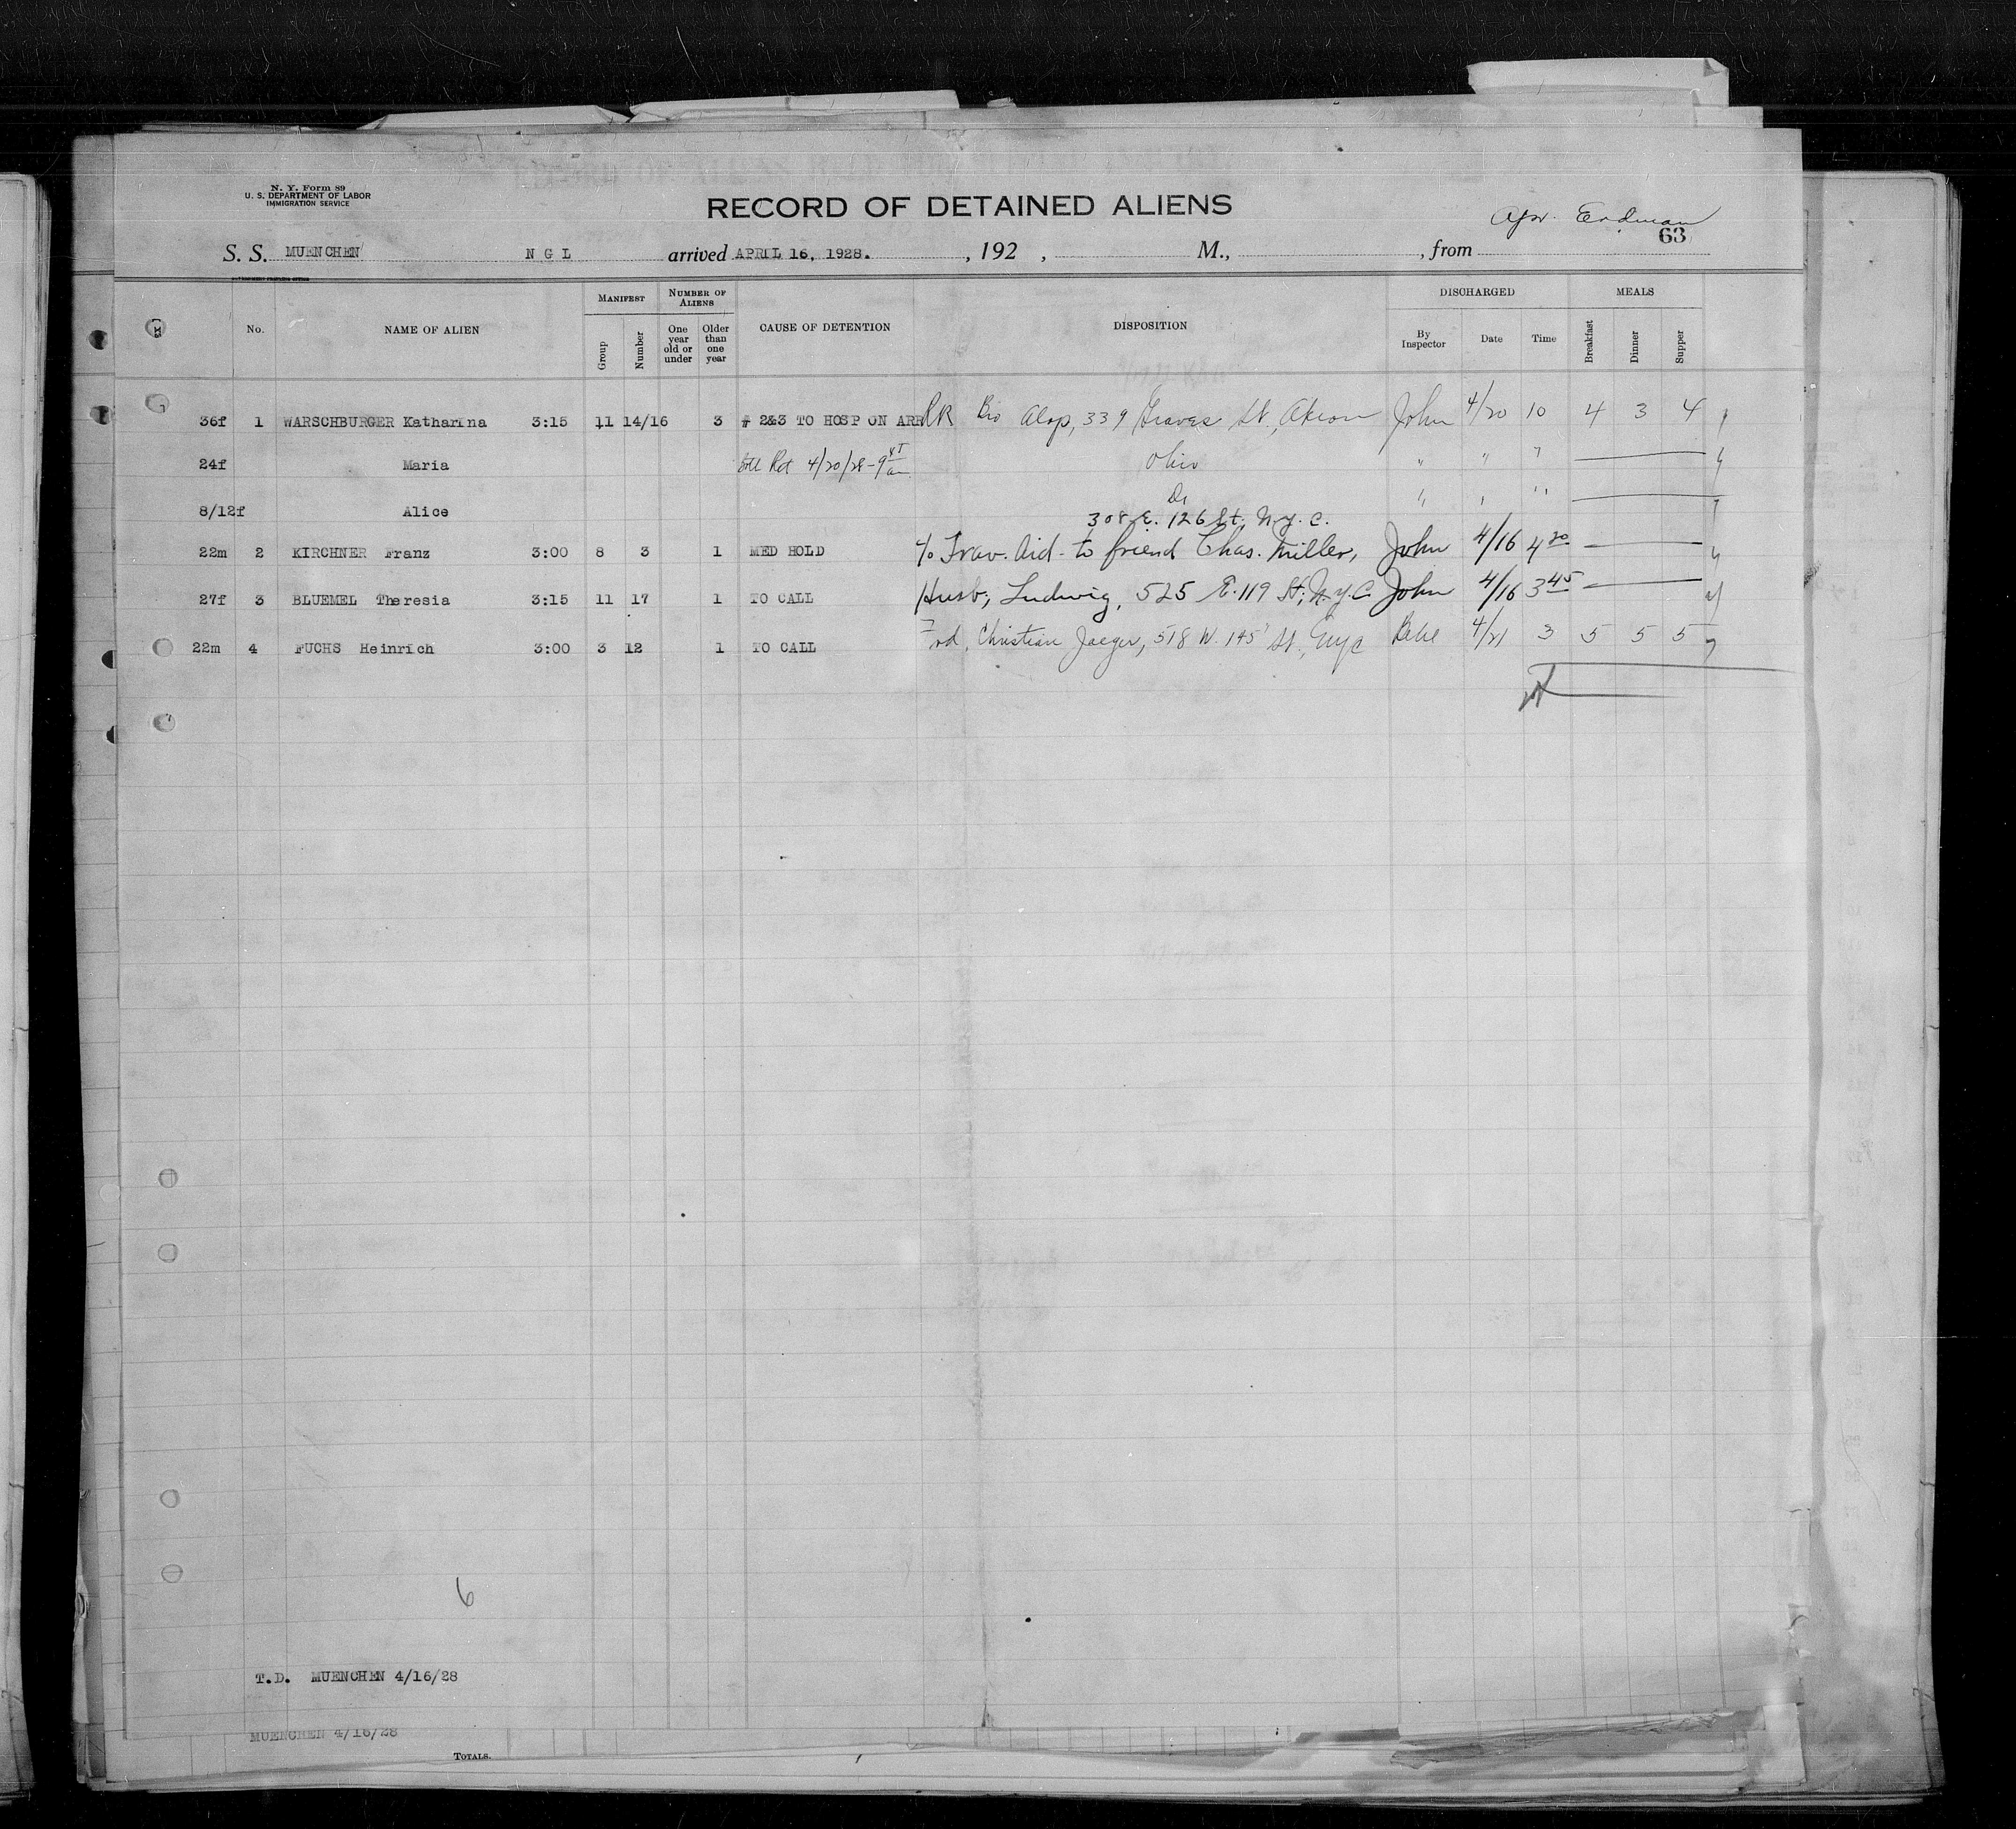 N. Y. Form 89
U. S. DEPARTMENT OF LABOR
IMMIGRATION SERVICE
RECORD OF DETAINED ALIENS
Erdman
63
S. S. MUENCHEN N G L arrived APRIL 16, 1928. , 192 , M., , from
No. NAME OF ALIEN MANIFEST Group Number NUMBER OF ALIENS One year old or under Older than one year CAUSE OF DETENTION DISPOSITION DISCHARGED By Inspector Date Time MEALS Breakfast Dinner Supper
36f 1 WARSCHBURGER Katharina 3:15 11 14/16 3 # 2&3 TO HOSP ON ARR RR Bro Alop, 339 Graves St., Akron John 4/20 10 4 3 4
24f Maria 4/20/28-9 Ohio " " "
8/12f Alice " " "
308 E. 126 St. N.Y.C.
22m 2 KIRCHNER Franz 3:00 8 3 1 MED HOLD c/o Trav. Aid - to friend Chas. Miller, John 4/16 4 20
27f 3 BLUEMEL Theresia 3:15 11 17 1 TO CALL Husb, Ludwig, 525 E. 119 St, N.Y.C. John 4/16 3 45
22m 4 FUCHS Heinrich 3:00 3 12 1 TO CALL Christian Jaeger, 518 W. 145 St., NYC 4/21 3 5 5 5
6
T.D. MUENCHEN 4/16/28
MUENCHEN 4/16/28
TOTALS.